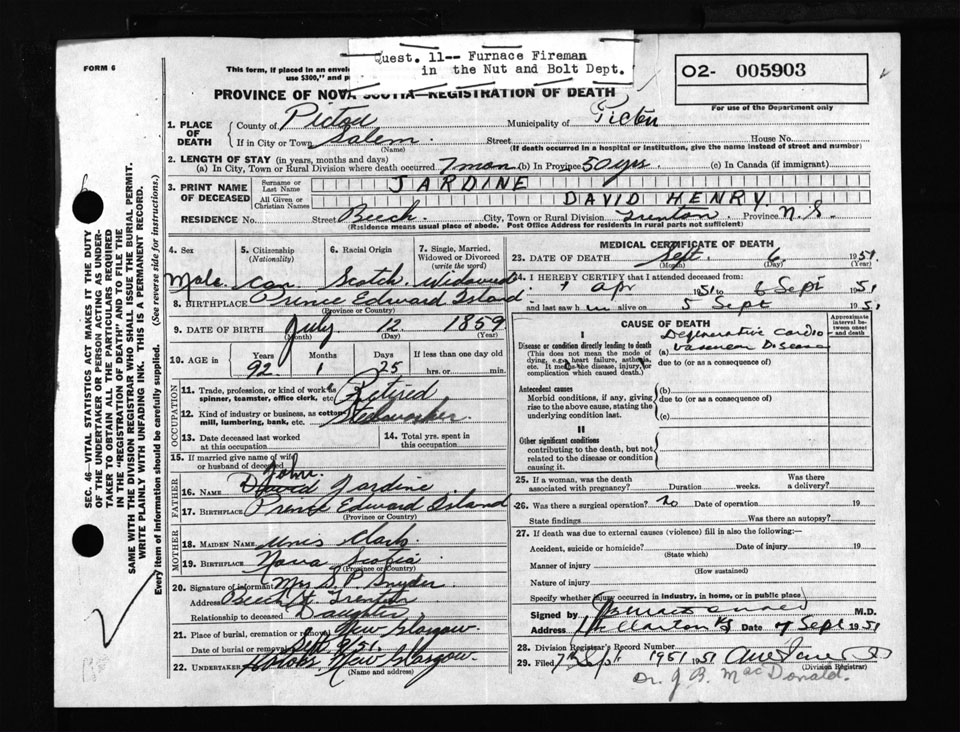 FORM 6
This form, if placed in an envelo
use $300," and p
Quest. 11-- Furnace Fireman
in the Nut and Bolt Dept.
02- 005903
For use of the Department only
PROVINCE OF NOVA SCOTIA—REGISTRATION OF DEATH
1. PLACE OF DEATH
County of Pictou Municipality of Pictou
If in City or Town Salem. Street House No.
(Name) (If death occurred in a hospital or institution, give the name instead of street and number)
2. LENGTH OF STAY (in years, months and days)
(a) In City, Town or Rural Division where death occurred 7 mon (b) In Province 50 yrs. (c) In Canada (if immigrant)
3. PRINT NAME OF DECEASED
Surname or Last Name JARDINE
All Given or Christian Names DAVID HENRY.
RESIDENCE No. Street Beech. City, Town or Rural Division Trenton. Province N.S.
(Residence means usual place of abode. Post Office Address for residents in rural parts not sufficient)
4. Sex 5. Citizenship (Nationality) 6. Racial Origin 7. Single, Married, Widowed or Divorced (write the word)
Male. Can. Scotch. Widowed
8. BIRTHPLACE Prince Edward Island
(Province or Country)
9. DATE OF BIRTH July 12 1859
(Month) (Day) (Year)
10. AGE in Years Months Days If less than one day
92. 1 25 hrs. or min.
OCCUPATION
11. Trade, profession, or kind of work as spinner, teamster, office clerk, etc. Retired
12. Kind of industry or business, as cotton mill, lumbering, bank, etc. Steelworker
13. Date deceased last worked at this occupation
14. Total yrs. spent in this occupation
15. If married give name of wife or husband of deceased
FATHER
John
16. Name David Jardine
17. Birthplace Prince Edward Island
(Province or Country)
MOTHER
18. Maiden Name
19. Birthplace Nova Scotia
(Province or Country)
20. Signature of informant Mrs S. P. Snyder.
Address Beech St. Trenton
Relationship to deceased Daughter
21. Place of burial, cremation or removal New Glasgow.
Date of burial or removal Sept. 9/51.
22. Undertaker New Glasgow.
(Name and address)
MEDICAL CERTIFICATE OF DEATH
23. DATE OF DEATH Sept. 6 1951
(Month) (Day) (Year)
24. I HEREBY CERTIFY that I attended deceased from:
Apr 1951 to 6 Sept 1951
and last saw him alive on 5 Sept 1951
CAUSE OF DEATH
Approximate interval between onset and death
I
Disease or condition directly leading to death
(This does not mean the mode of dying, e.g., heart failure, asthenia, etc. It means the disease, injury, or complication which caused death.)
(a) Degenerative Cardio Vascular Disease
due to (or as a consequence of)
Antecedent causes
Morbid conditions, if any, giving rise to the above cause, stating the underlying condition last.
(b)
due to (or as a consequence of)
(c)
II
Other significant conditions
contributing to the death, but not related to the disease or condition causing it.
25. If a woman, was the death associated with pregnancy? Duration weeks. Was there a delivery?
26. Was there a surgical operation? no Date of operation 19
State findings Was there an autopsy?
27. If death was due to external causes (violence) fill in also the following:—
Accident, suicide or homicide? Date of injury 19
(State which)
Manner of injury
(How sustained)
Nature of injury
Specify whether injury occurred in industry, in home, or in public place
Signed by M.D.
Address Date 7 Sept 1951
28. Division Registrar's Record Number
29. Filed 7 Sept 1951 1951
(Division Registrar)
Dr. J. B. MacDonald.
SEC. 46—VITAL STATISTICS ACT MAKES IT THE DUTY
OF THE UNDERTAKER OR PERSON ACTING AS UNDERTAKER
TO OBTAIN ALL THE PARTICULARS REQUIRED
IN THE "REGISTRATION OF DEATH" AND TO FILE THE
SAME WITH THE DIVISION REGISTRAR WHO SHALL ISSUE THE BURIAL PERMIT.
WRITE PLAINLY WITH UNFADING INK. THIS IS A PERMANENT RECORD.
Every item of information should be carefully supplied. (See reverse side for instructions.)